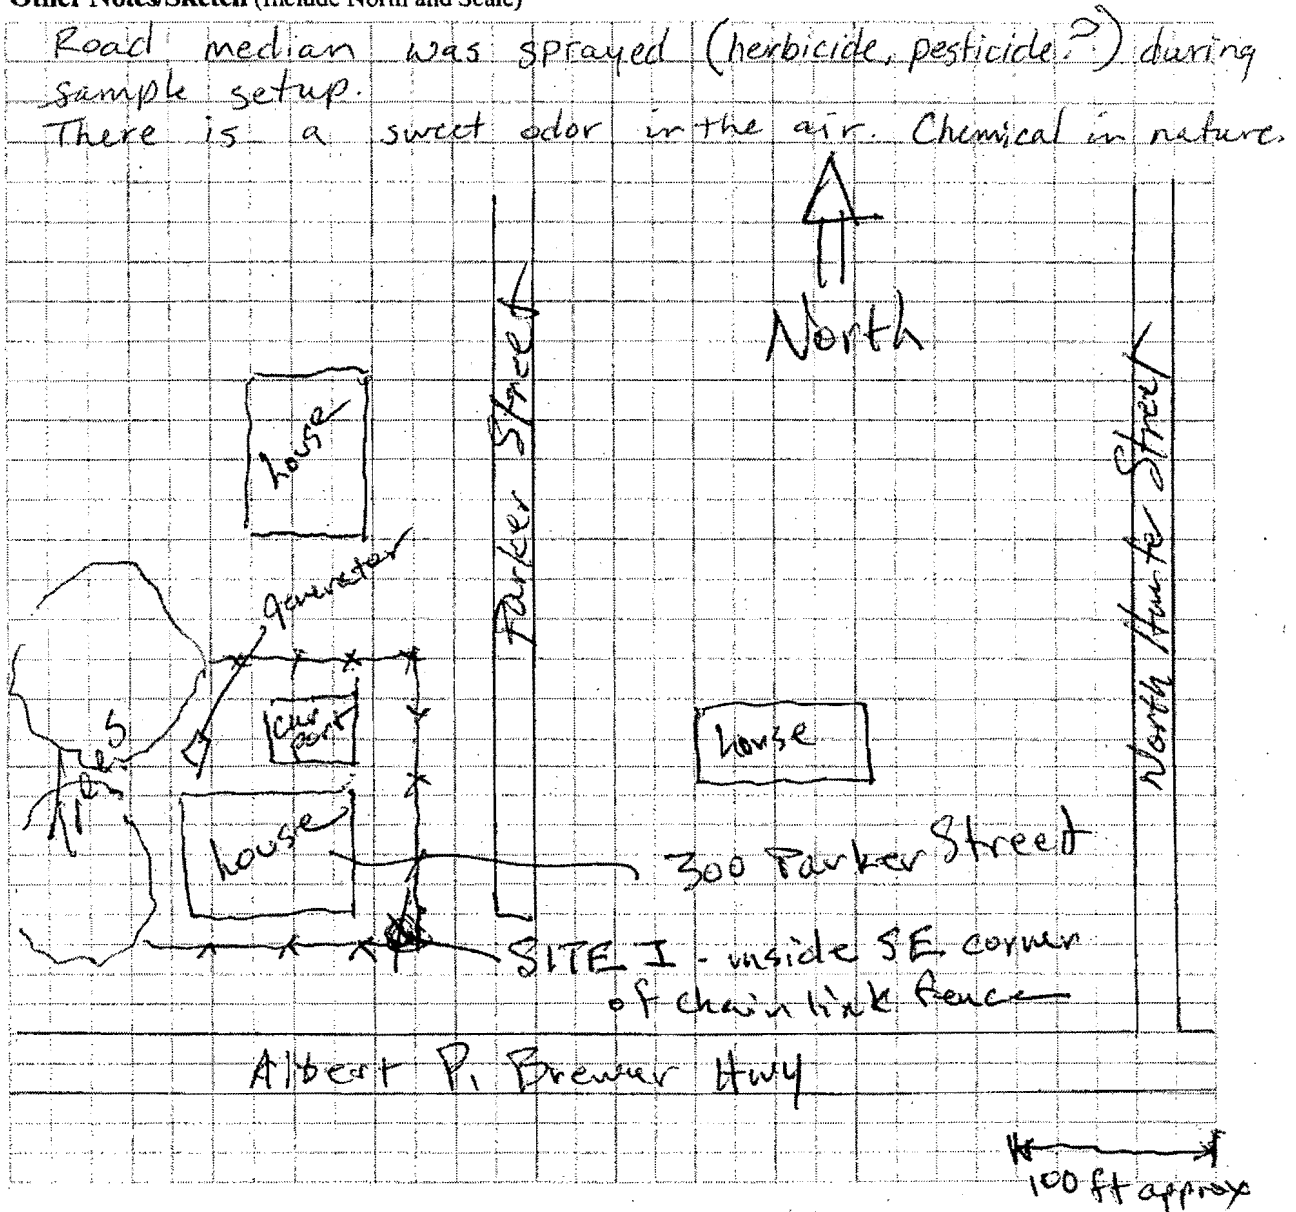 Other Notes/Sketch (Include North and Scale)
Road median was sprayed (herbicide, pesticide?) during
sample setup.
There is a sweet odor in the air. Chemical in nature.
North
Parker Street
North Hunter Street
house
generator
car
port
house
Trees
house
300 Parker Street
SITE I - inside SE corner
of chain link fence
Albert P. Brewer Hwy
100 ft approx